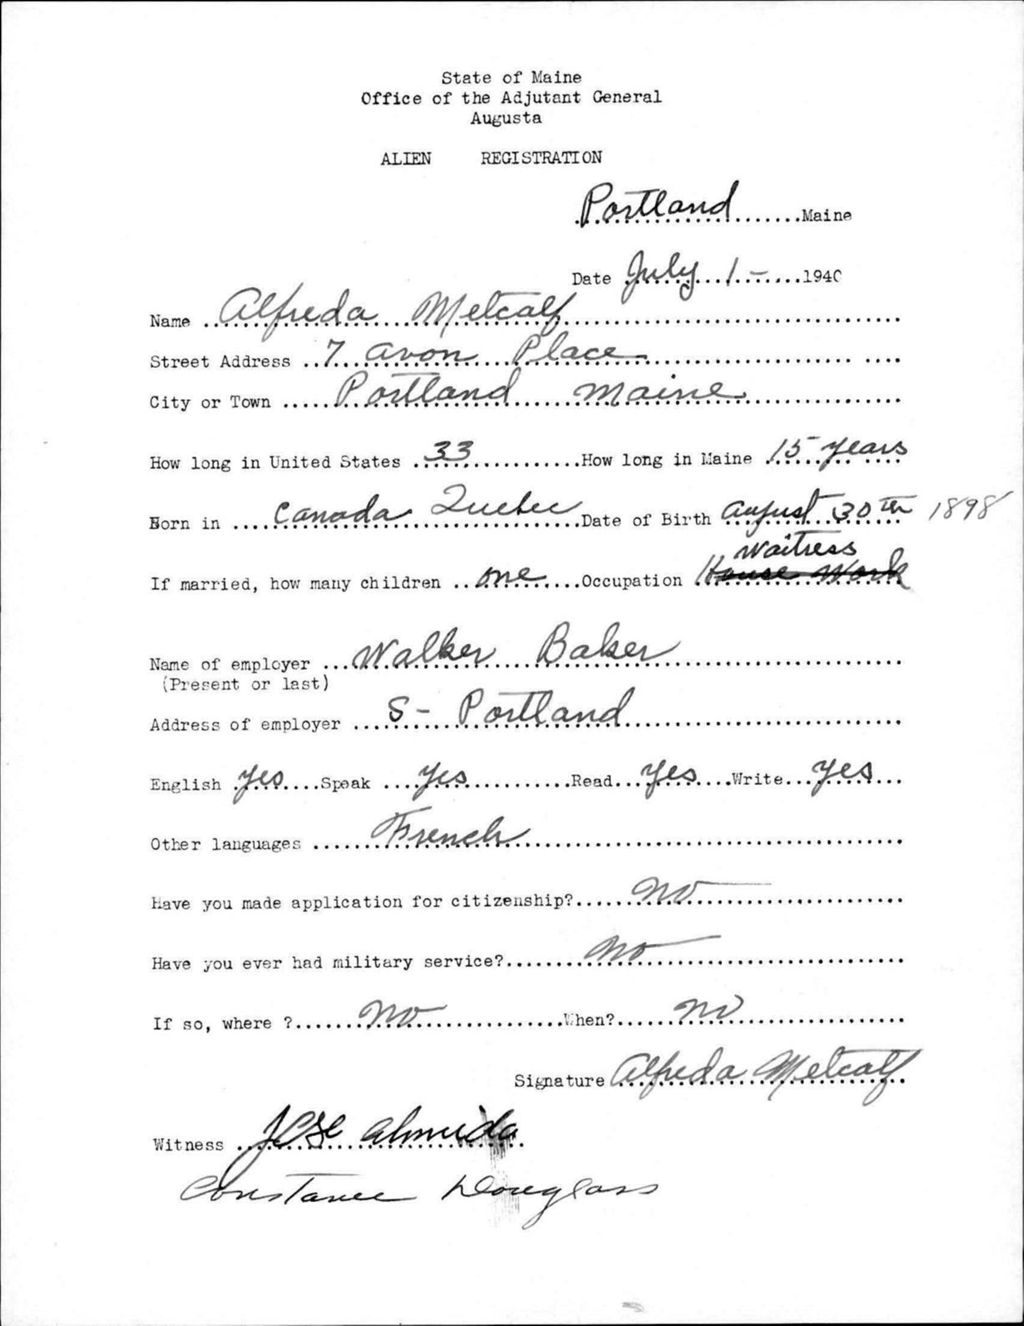 State of Maine
Office of the Adjutant General
Augusta
ALIEN REGISTRATION
Portland Maine
Date July 1- 1940
Name Alfreda Metcalf
Street Address 7 Avon Place
City or Town Portland Maine
How long in United States 33 How long in Maine 15 years
Born in Canada Quebec Date of Birth August 30th 1898
Waitress
If married, how many children one Occupation House Work
Name of employer Walker Baker
(Present or last)
Address of employer S- Portland
English Yes Speak Yes Read Yes Write Yes
Other languages French
Have you made application for citizenship? No
Have you ever had military service? No
If so, where ? No When? No
Signature Alfreda Metcalf
Witness Almeida
Constance Douglass